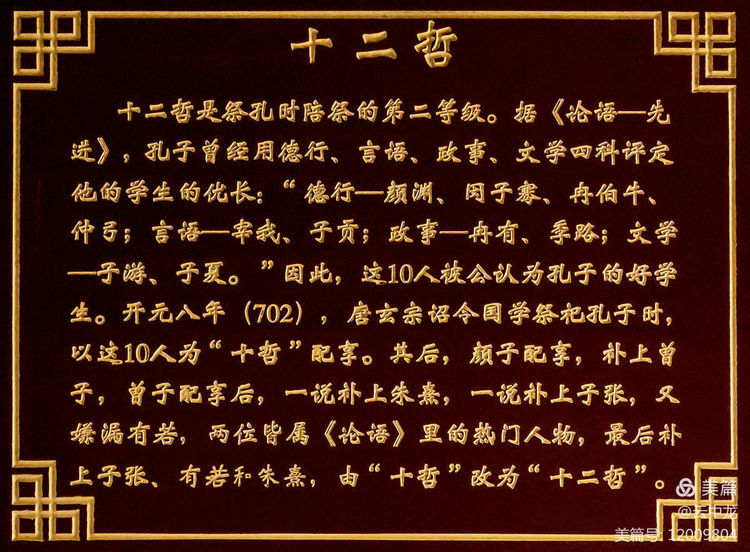 十二哲
十二哲是祭孔时陪祭的第二等级。据《论语—先
进》，孔子曾经用德行、言语、政事、文学四科评定
他的学生的优长：“德行—颜渊、闵子骞、冉伯牛、
仲弓；言语—宰我、子贡；政事—冉有、季路；文学
—子游、子夏。”因此，这10人被公认为孔子的好学
生。开元八年（702），唐玄宗诏令国学祭祀孔子时，
以这10人为“十哲”配享。其后，颜子配享，补上曾
子，曾子配享后，一说补上朱熹，一说补上子张，又
嫌漏有若，两位皆属《论语》里的热门人物，最后补
上子张、有若和朱熹，由“十哲”改为“十二哲”。
美篇
@云中龙
美篇号: 12009804